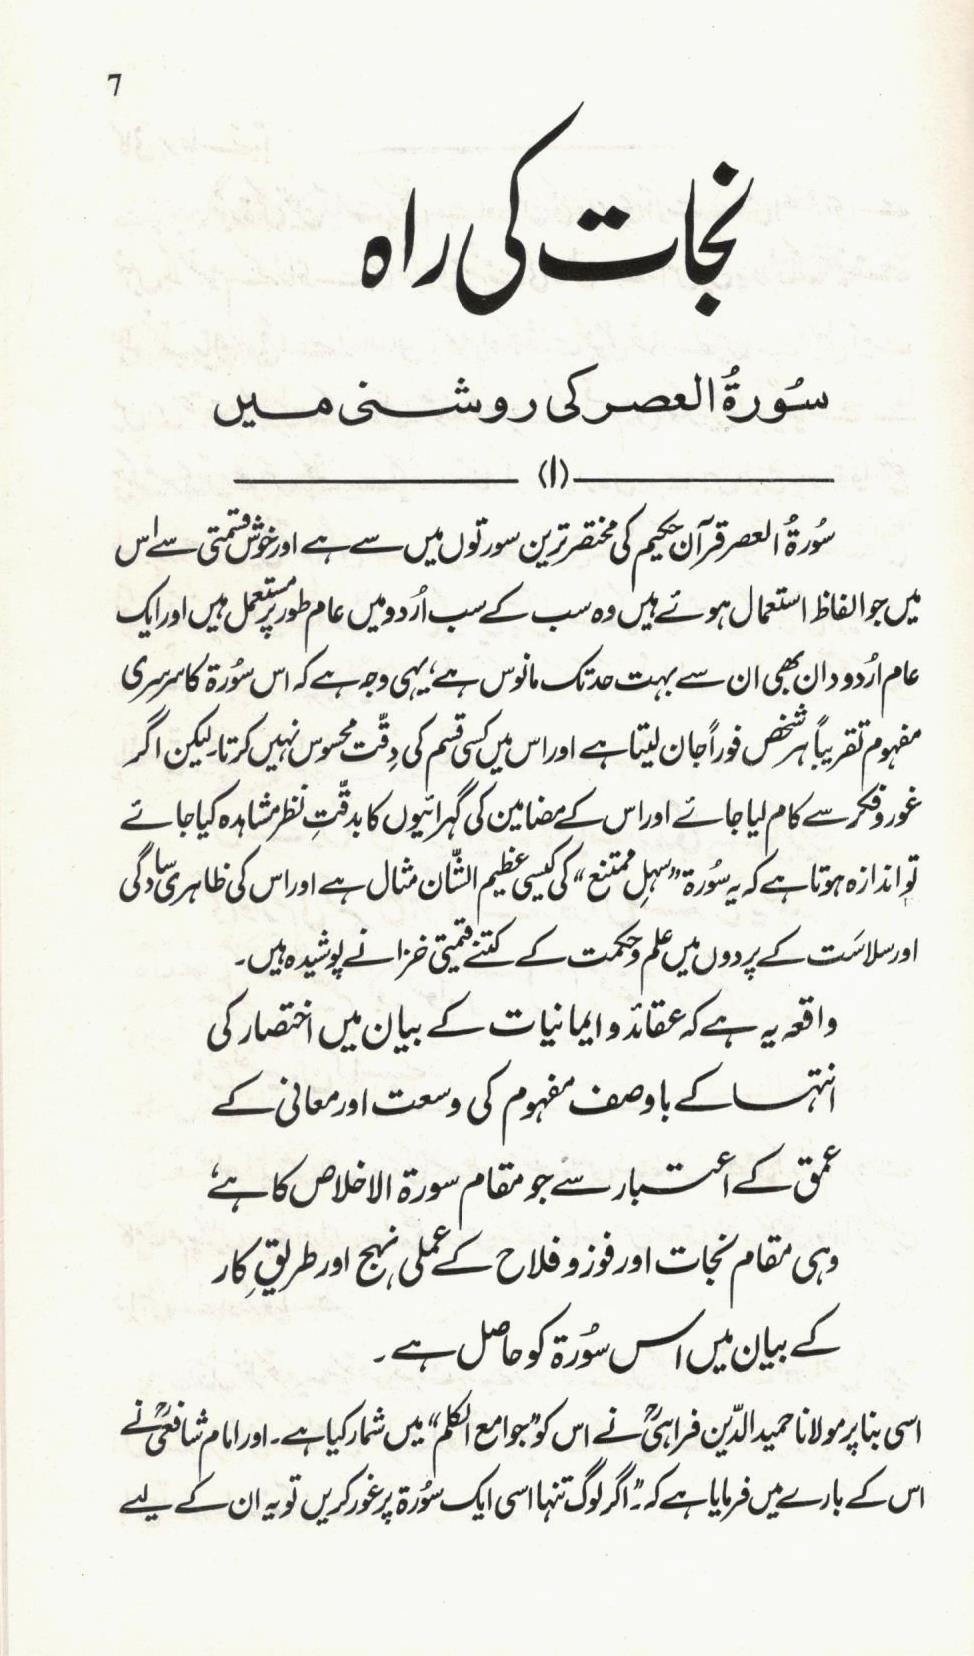 7
نجات کی راہ
سُورۃُ العصر کی روشنی میں
(۱)
سُورۃُ العصر قرآنِ حکیم کی مختصر ترین سورتوں میں سے ہے اور خوش قسمتی سے اس
میں جو الفاظ استعمال ہوئے ہیں وہ سب کے سب اُردو میں عام طور پر مستعمل ہیں اور ایک
عام اُردو دان بھی ان سے بہت حد تک مانوس ہے؛ یہی وجہ ہے کہ اس سُورۃ کا سرسری
مفہوم تقریباً ہر شخص فوراً جان لیتا ہے اور اس میں کسی قسم کی دِقّت محسوس نہیں کرتا۔ لیکن اگر
غور و فکر سے کام لیا جائے اور اس کے مضامین کی گہرائیوں کا بدقّتِ نظر مشاہدہ کیا جائے
تو اندازہ ہوتا ہے کہ یہ سُورۃ ”سہلِ ممتنع“ کی کیسی عظیم الشّان مثال ہے اور اس کی ظاہری سادگی
اور سلاسَت کے پردوں میں علم و حکمت کے کتنے قیمتی خزانے پوشیدہ ہیں۔
واقعہ یہ ہے کہ عقائد و ایمانیات کے بیان میں اختصار کی
انتہا کے باوصف مفہوم کی وسعت اور معانی کے
عمق کے اعتبار سے جو مقام سورۃ الاخلاص کا ہے؛
وہی مقام نجات اور فوز و فلاح کے عملی نہج اور طریقِ کار
کے بیان میں اس سُورۃ کو حاصل ہے۔
اسی بنا پر مولانا حمید الدّین فراہیؒ نے اس کو ”جوامع الکلم“ میں شمار کیا ہے۔ اور امام شافعیؒ نے
اس کے بارے میں فرمایا ہے کہ ”اگر لوگ تنہا اسی ایک سُورۃ پر غور کریں تو یہ ان کے لیے